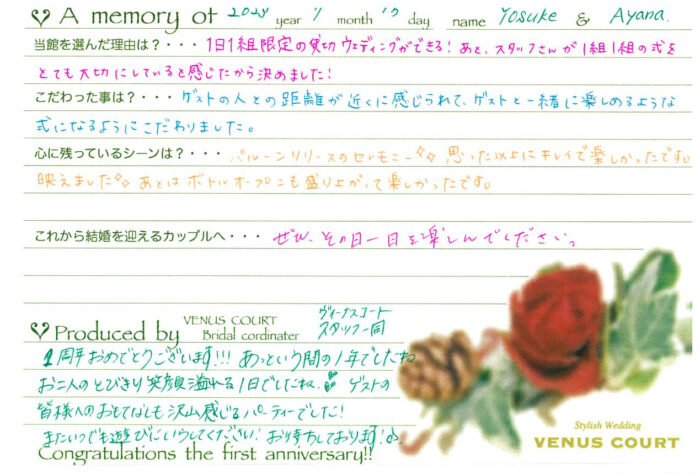 A memory of 2023 year 9 month 17 day name Yosuke & Ayana.
当館を選んだ理由は？・・・1日1組限定の貸切ウェディングができる！あと、スタッフさんが1組1組の式を
とても大切にしていると感じたから決めました！
こだわった事は？・・・ゲストの人との距離が近くに感じられて、ゲストと一緒に楽しめるような
式になるようにこだわりました。
心に残っているシーンは？・・・バルーンリリースのセレモニー 思った以上にキレイで楽しかったです。
映えました あとはボトルオープンも盛り上がって楽しかったです。
これから結婚を迎えるカップルへ・・・ぜひ、その日一日を楽しんでください
Produced by VENUS COURT Bridal cordinater ヴィーナスコート スタッフ一同
1周年おめでとうございます!!! あっという間の1年でしたね
お二人のとびきり笑顔溢れる1日でしたね、ゲストの
皆様へのおもてなしも沢山感じるパーティーでした！
またいつでも遊びにいらしてください！お待ちしております！♪
Congratulations the first anniversary!!
Stylish Wedding
VENUS COURT